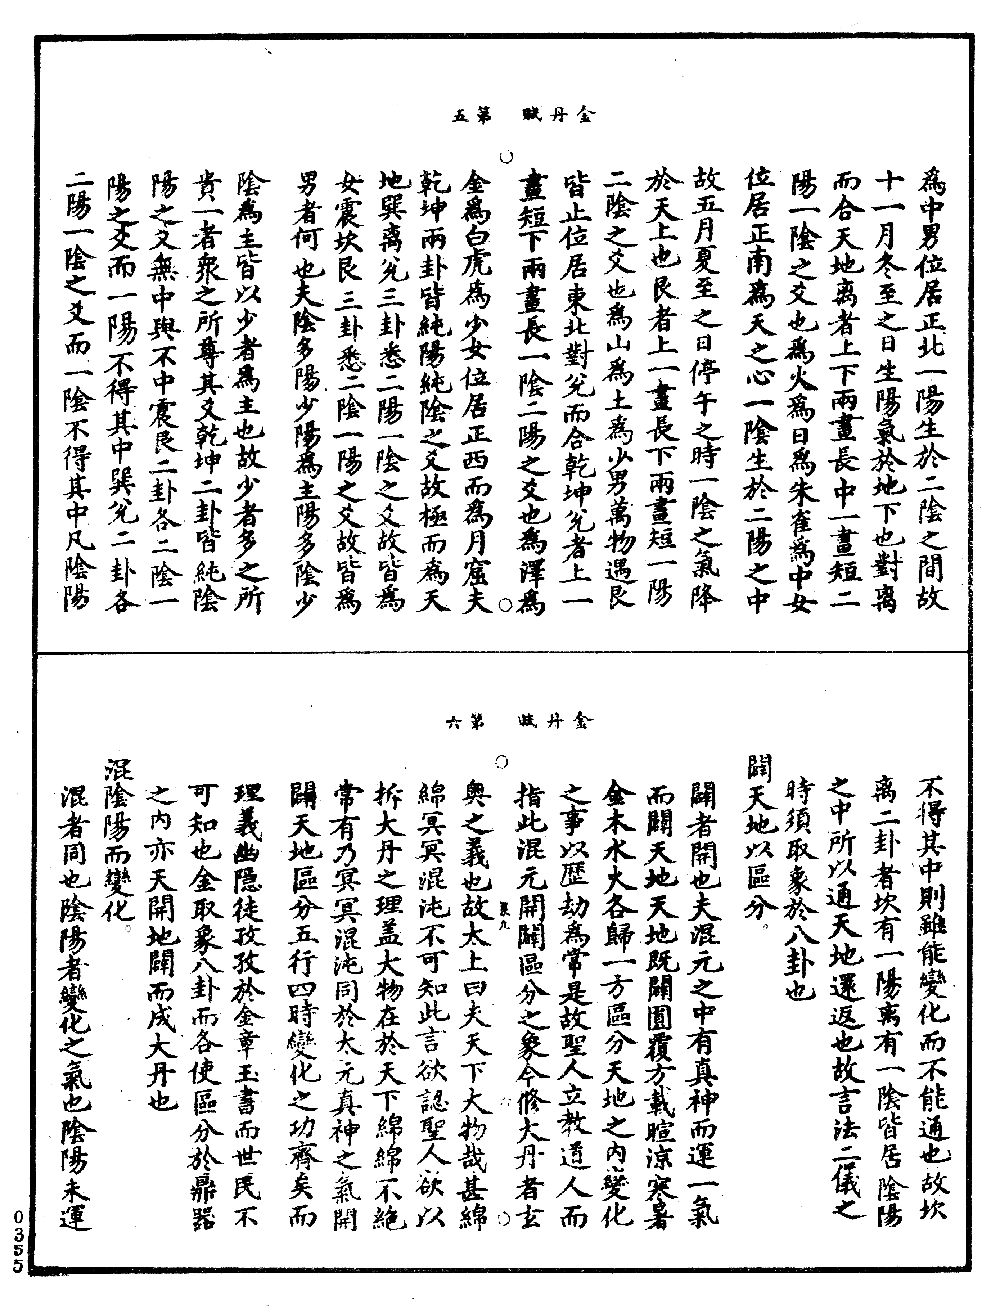 金丹賦　第五
為中男位居正北一陽生於二陰之間故
十一月冬至之日生陽氣於地下也對離
而合天地離者上下兩畫長中一畫短二
陽一陰之爻也為火為日為朱雀為中女
位居正南為天之心一陰生於二陽之中
故五月夏至之日停午之時一陰之氣降
於天上也艮者上一畫長下兩畫短一陽
二陰之爻也為山為土為少男萬物遇艮
皆止位居東北對兌而合乾坤兌者上一
畫短下兩畫長一陰二陽之爻也為澤為
金為白虎為少女位居正西而為月窟夫
乾坤兩卦皆純陽純陰之爻故極而為天
地巽離兌三卦悉二陽一陰之爻故皆為
女震坎艮三卦悉二陰一陽之爻故皆為
男者何也夫陰多陽少陽為主陽多陰少
陰為主皆以少者為主也故少者多之所
貴一者眾之所尊其爻乾坤二卦皆純陰
陽之爻無中與不中震艮二卦各二陰一
陽之爻而一陽不得其中巽兌二卦各
二陽一陰之爻而一陰不得其中凡陰陽
金丹賦　第六
不得其中則雖能變化而不能通也故坎
離二卦者坎有一陽離有一陰皆居陰陽
之中所以通天地還返也故言法二儀之
時須取象於八卦也
闢天地以區分。
闢者開也夫混元之中有真神而運一氣
而闢天地天地既闢圓覆方載暄涼寒暑
金木水火各歸一方區分天地之內變化
之事以歷劫為常是故聖人立教道人而
指此混元開闢區分之象今修大丹者玄
奧之義也故太上曰夫天下大物哉甚綿
綿冥冥混沌不可知此言欲認聖人欲以
拆大丹之理蓋大物在於天下綿綿不絕
常有乃冥冥混沌同於太元真神之氣開
闢天地區分五行四時變化之功齊矣而
理義幽隱徒孜孜於金章玉書而世民不
可知也金取象八卦而各使區分於鼎器
之內亦天開地闢而成大丹也
混陰陽而變化。
混者同也陰陽者變化之氣也陰陽未運
0355